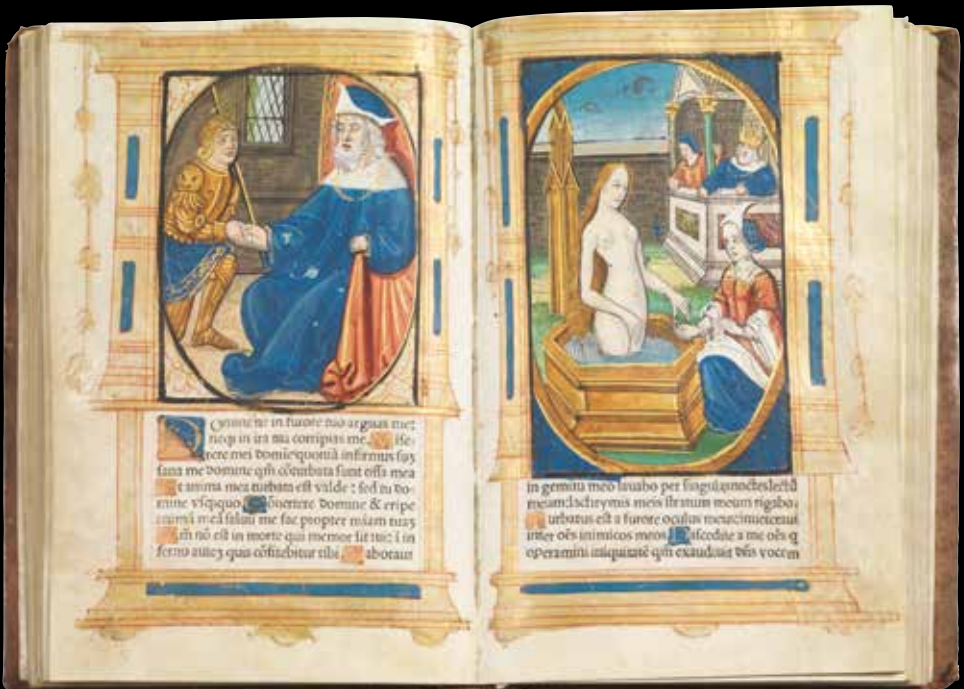 Omine ne in furore tuo arguas me:
neqꝫ in ira tua corripias me. Mise-
rere mei domine quoniā infirmus sum
sana me domine qm̄ cōturbata sunt ossa mea
Et anima mea turbata est valde : sed tu do-
mine vsqꝫquo. Conuertere domine & eripe
animā meā saluū me fac propter miam tuaꝫ
Qm̄ nō est in morte qui memor sit tui: i in
ferno auteꝫ quis cōfitebitur tibi. Laboraui
in gemitu meo lauabo per singulas noctes lectū
meum: lachrymis meis stratum meum rigabo.
Turbatus est a furore oculus meus: inueteraui
inter oēs inimicos meos. Discedite a me oēs q
operamini iniquitatē qm̄ exaudiuit dn̄s vocem